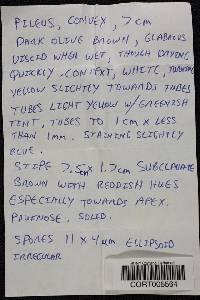 PILEUS, CONVEX, 7 cm
DARK OLIVE BROWN, GLABROUS
VISCID WHEN WET, THOUGH DRYING
QUICKLY. CONTEXT, WHITE, TURNING
YELLOW SLIGHTLY TOWARDS TUBES
TUBES LIGHT YELLOW W/ GREENISH
TINT, TUBES TO 1 cm x LESS
THAN 1mm. STAINING SLIGHTLY
BLUE.
STIPE 7.5 x 1.7 cm SUBCLAVATE
BROWN WITH REDDISH HUES
ESPECIALLY TOWARDS APEX.
PRUINOSE. SOLID.
SPORES 11 x 4 um ELLIPSOID
IRREGULAR
CORT006564